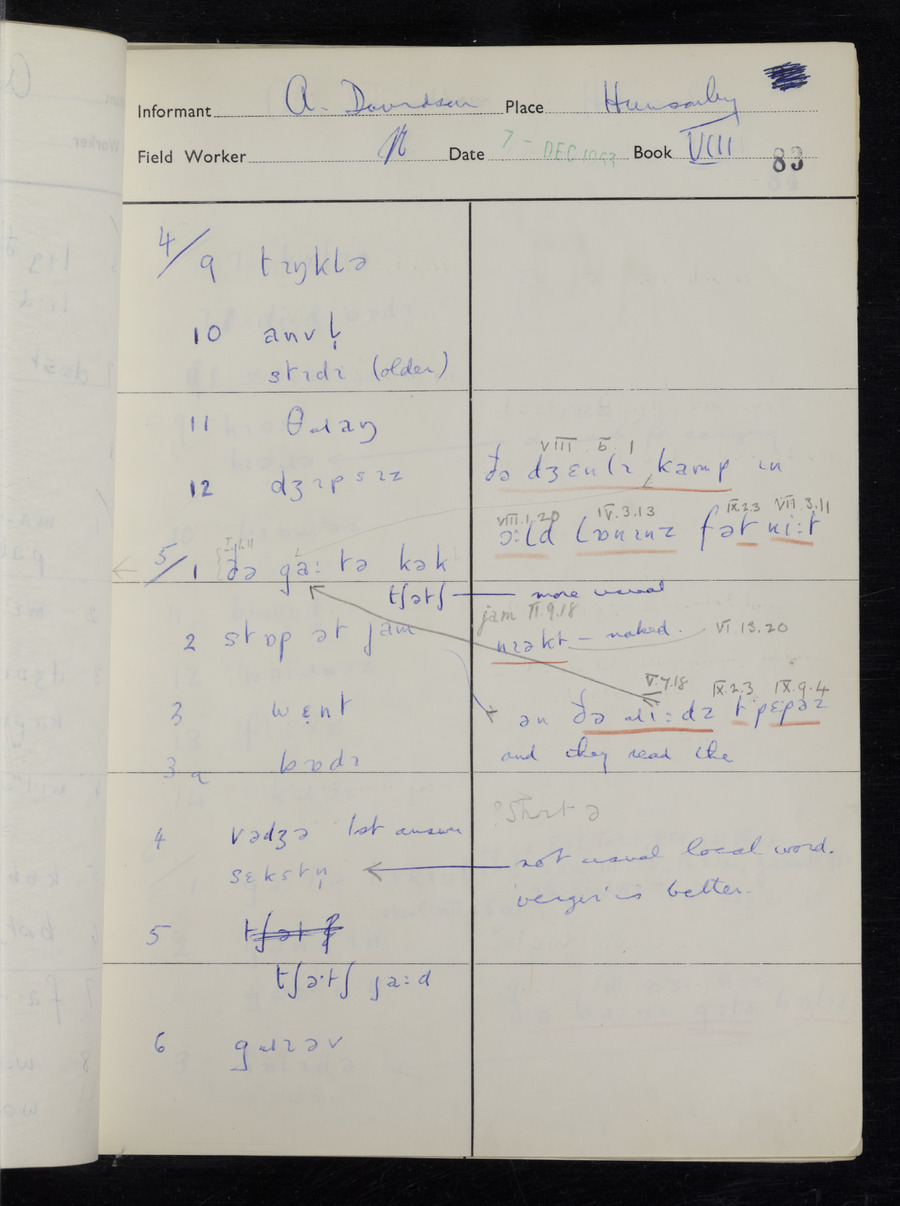 Informant A. Davidson Place Hunsonby
Field Worker Date 7 - DEC 1953 Book VIII 83
4/9 tɪŋklə
10 anvl̩
stɪdɪ (older)
11 θɹaŋ
12 dʒɪpsɪz
5/1 ðə ga: tə kək
tʃətʃ — more usual
2 stɒp ət jam
3 wɛnt
3a bɒdɪ
4 vədʒə 1st answer
sɛkstn̩
5
tʃə·tʃ ja:d
6 gɹɪəv
VIII. 5. 1
ðə dʒɛntɪ kamp ɪn
VIII.1.20 IV.3.13 IX.2.3 VII.3.11
ɔ:ld lɒnɪnz fət ni:t
jam VI.9.18
nɪəkt — naked. VI.13.20
V.7.18 IX.2.3 IX.9.4
ən ðə ɹi:dz t pɛpəz
and they read the
? Short ə
not usual local word.
'verger' is better.